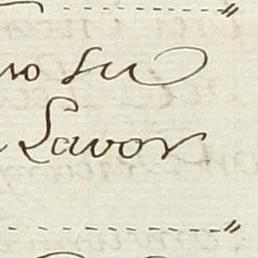 no su
Lavor